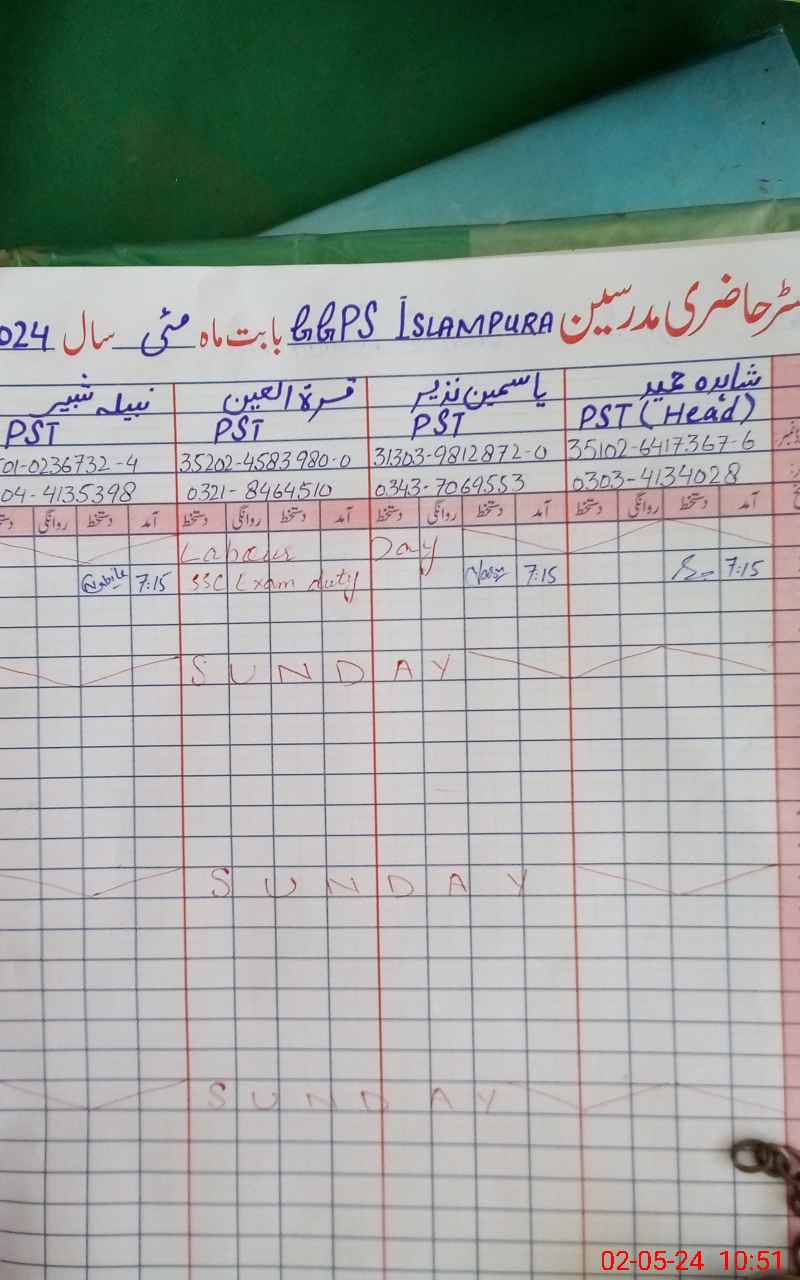 سٹر حاضری مدرسین GGPS ISLAMPURA بابت ماہ مئی سال 024
شاہدہ حمید یاسمین نذیر قرۃ العین نبیلہ شبیر
PST (Head) PST PST PST
35102-6417367-6 31303-9812872-0 35202-4583980-0 01-0236732-4
0303-4134028 0343-7069553 0321-8464510 04-4135398
آمد دستخط روانگی دستخط آمد دستخط روانگی دستخط آمد دستخط روانگی دستخط آمد دستخط روانگی
Labour Day
7:15 7:15 SSC Exam duty 7:15 Nabila
SUNDAY
SUNDAY
SUNDAY
02-05-24 10:51